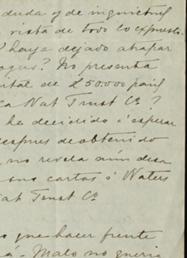 duda y de inquietud
vista de todo lo expuesto
? haya dejado atrapar
? No presenta
ital de £50.000 para
ca Nat Trust Co?
ha decidido a esperar
despues de obtenido
no revela
sus cartas á Waters
at Trust Co
que hacer frente
Malo no queria